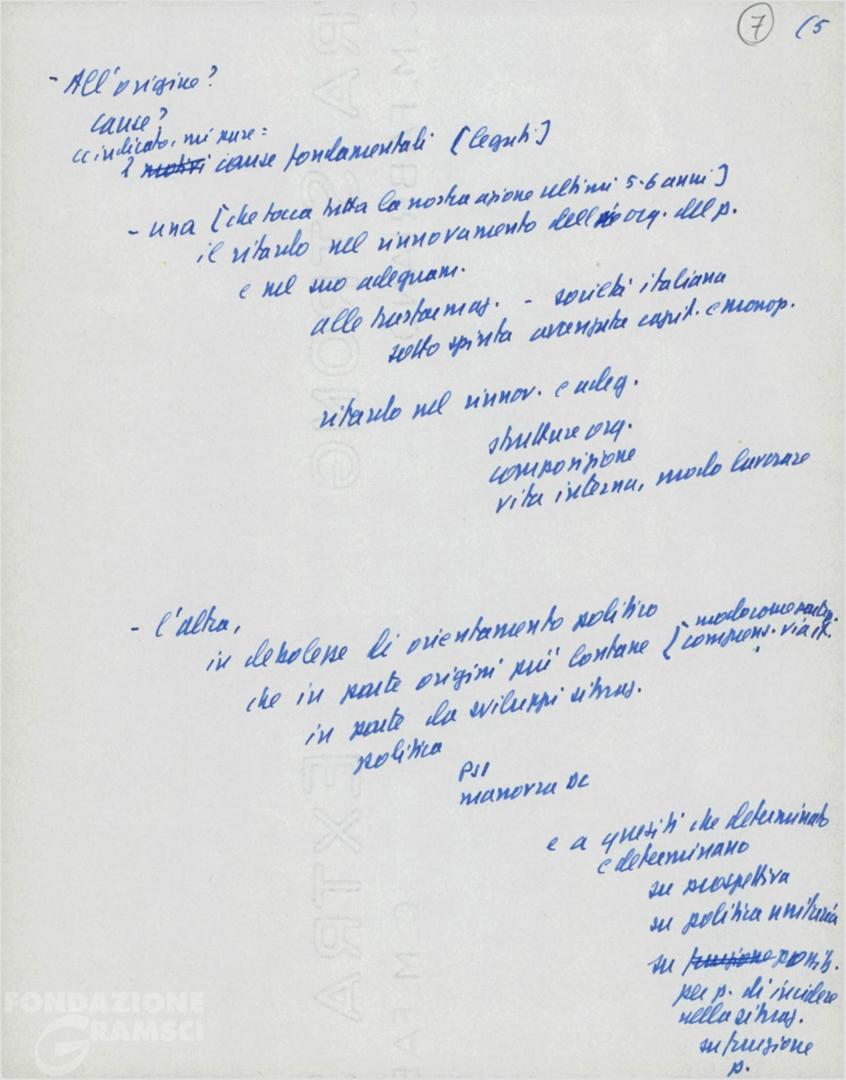 7 (5
- All'origine?
cause?
cc indicato, mi pare:
2 motivi cause fondamentali [legati]
- una [che tocca tutta la nostra azione ultimi 5-6 anni]
il ritardo nel rinnovamento dell' org. del p.
e nel suo adeguam.
alle trasformaz. - società italiana
sotto spinta avanzata capit. e monop.
ritardo nel rinnov. e adeg.
strutture org.
composizione
vita interna, modo lavorare
- l'altra,
in debolezze di orientamento politico
che in parte origini più lontane [modo come
compens. via it.
in parte da sviluppi situaz.
politica
PSI
manovra DC
e a quesiti che determinato
e determinano
su prospettiva
su politica unitaria
su funzione possib.
per p. di incidere
nella situaz.
su funzione
p.
EXTRA STRONG
EXTRA
FONDAZIONE
GRAMSCI